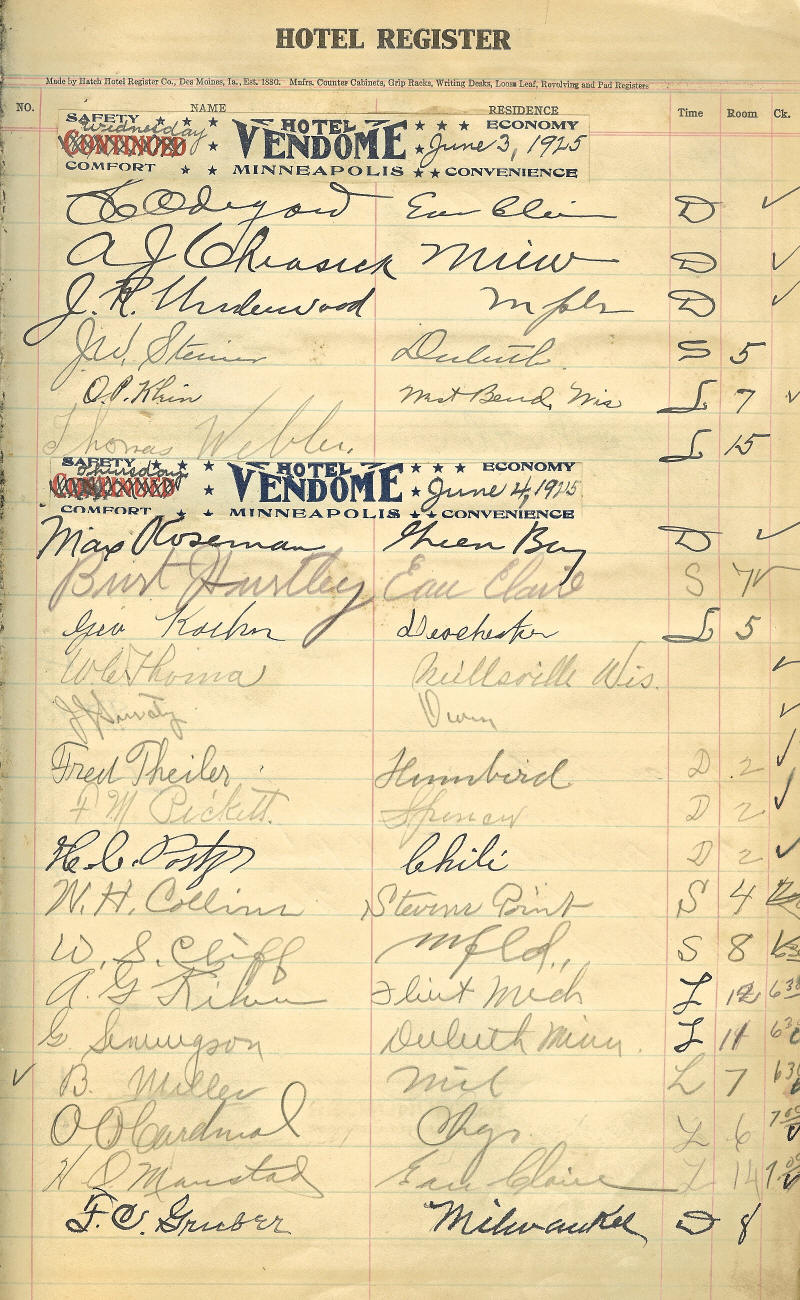 HOTEL REGISTER
Made by Hatch Hotel Register Co., Des Moines, Ia., Est. 1880. Mnfrs. Counter Cabinets, Grip Racks, Writing Desks, Loose Leaf, Revolving and Pad Registers
NO. NAME RESIDENCE Time Room Ck.
SAFETY HOTEL ECONOMY
Wednesday CONTINUED VENDOME June 3, 1925
COMFORT MINNEAPOLIS CONVENIENCE
Odegard Eau Claire D ✓
A J D ✓
J. R. Underwood Mpls D ✓
J.W. Steiner Duluth S 5
O.P. Klein West Bend, Wis L 7 ✓
Thomas Webber. L 15
SAFETY HOTEL ECONOMY
Thursday CONTINUED VENDOME June 4, 1925
COMFORT MINNEAPOLIS CONVENIENCE
Max Roseman Green Bay D ✓
Burt Hartley Eau Claire S 7 ✓
Geo L 5
W C Thoma Neillsville Wis. ✓
Owen ✓
Fred Theiler Humbird D 2 ✓
F M Pickett. Spencer D 2 ✓
H. C. Chili D 2 ✓
W. H. Collins Stevens Point S 4
W. S. Cliff Mfld., S 8 6 30
A. G Flint Mich L 12 6 30
G Duluth Minn. L 11 6 30
✓ B. Miller Mil L 7 6 30
O O Cardinal Chgo. L 6 7 00 ✓
H O Eau Claire L 14 7 00 ✓
F. C. Gruber Milwaukee D 8